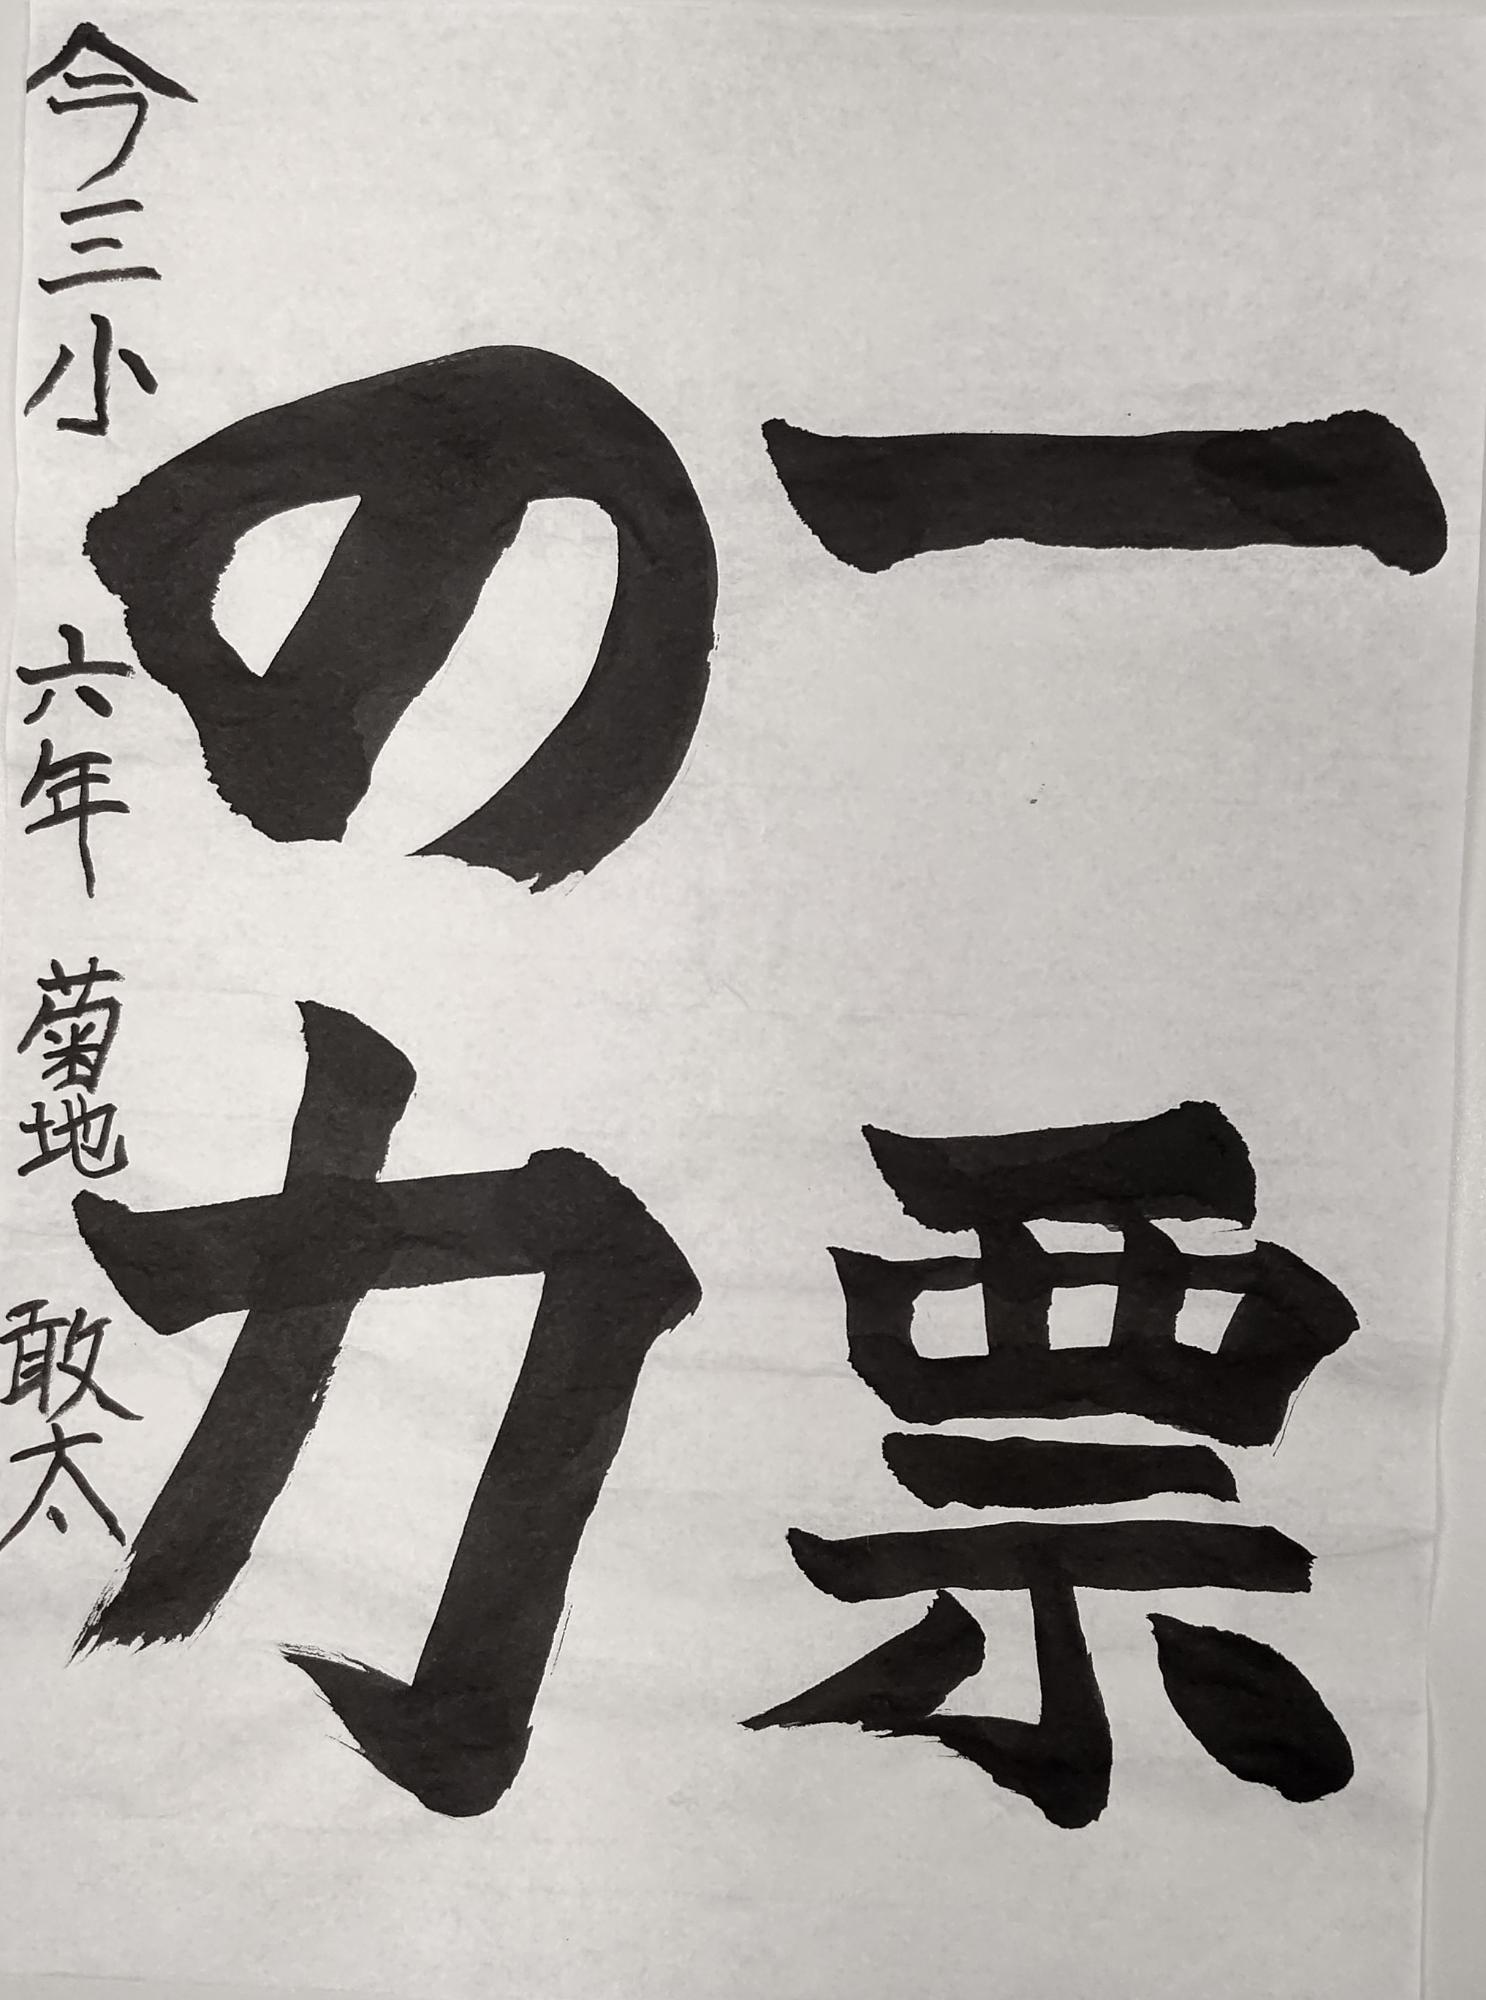 一票
の力
今三小 六年 菊地 敢太